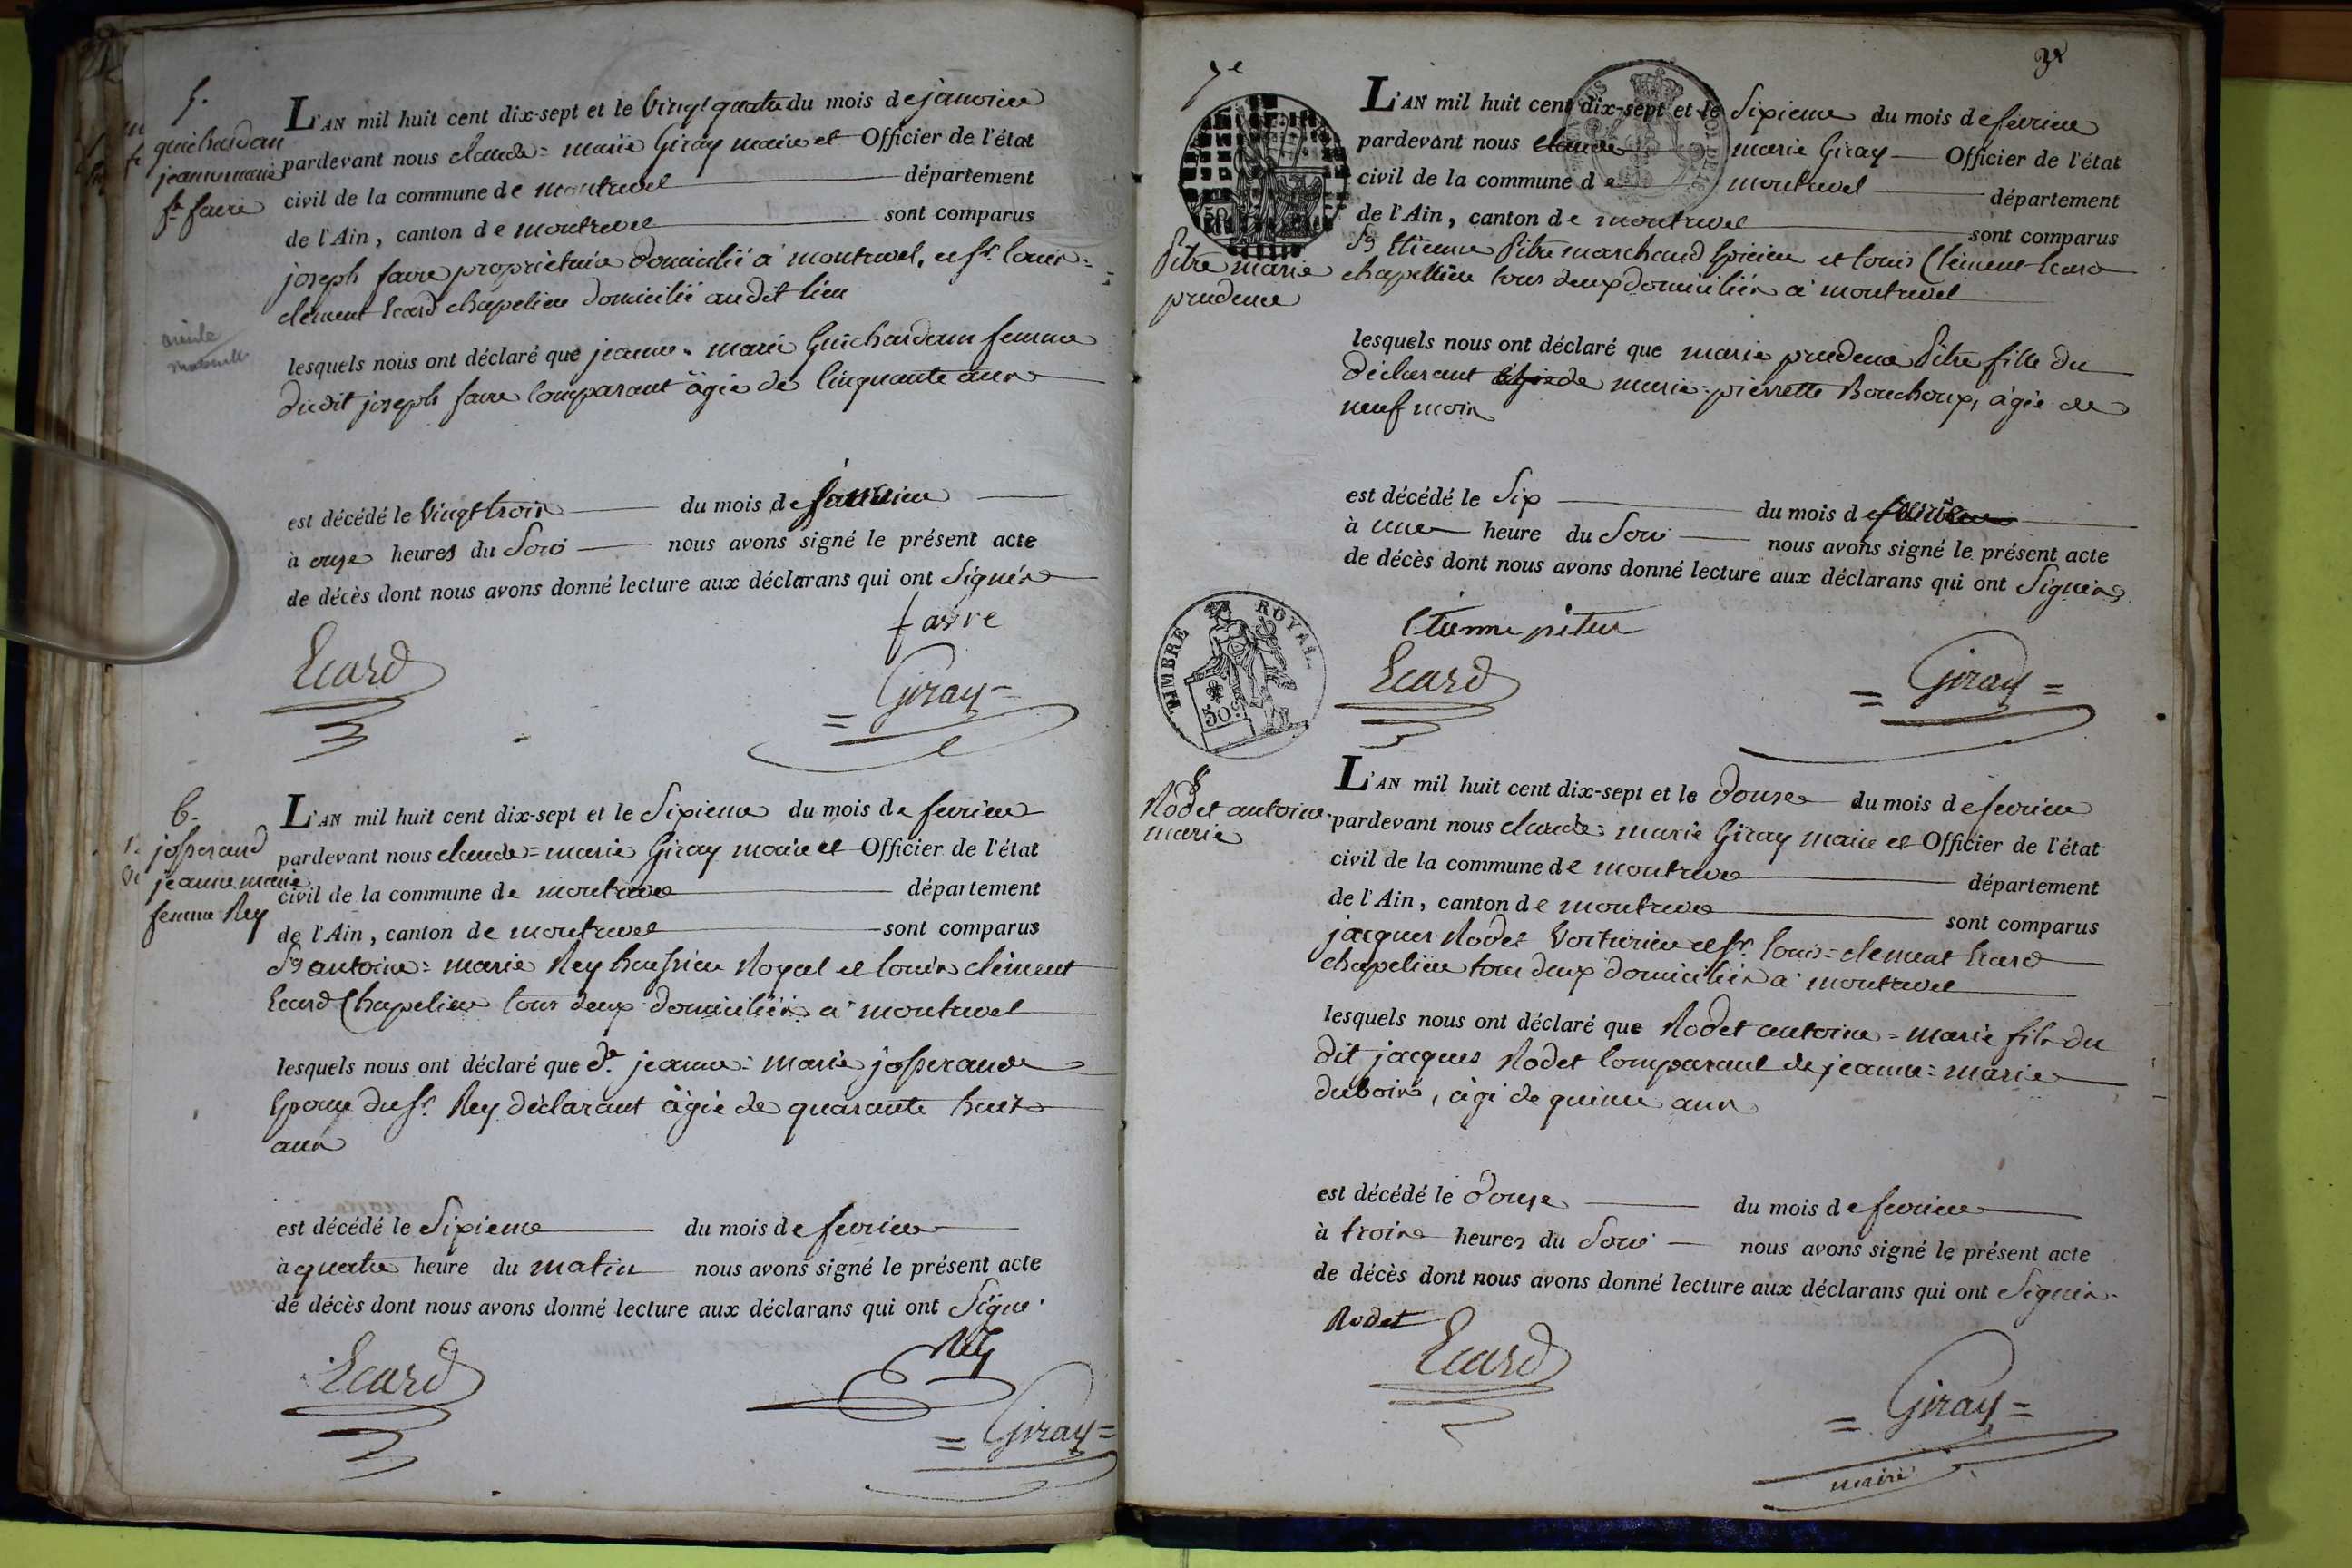 5.
guichardan
jeanne marie
fe. favre
L'AN mil huit cent dix-sept et le vingt quatre du mois de janvier
pardevant nous claude = marie Giray maire et Officier de l'état
civil de la commune de montrevel département
de l'Ain, canton de montrevel sont comparus
joseph favre propriétaire domicilié à montrevel, et sr. louis =
clement Ecard chapelier domicilié audit lieu
lesquels nous ont déclaré que jeanne = marie Guichardan femme
dudit joseph favre comparant âgée de cinquante ans
est décédé le vingt trois du mois de janvier
à onze heures du soir nous avons signé le présent acte
de décès dont nous avons donné lecture aux déclarans qui ont signés
favre
Ecard
= Giray =
6.
josserand
jeanne marie
femme Rey
L'AN mil huit cent dix-sept et le sixieme du mois de fevrier
pardevant nous claude = marie Giray maire et Officier de l'état
civil de la commune de montrevel département
de l'Ain, canton de montrevel sont comparus
Srs antoine = marie Rey huissier Royal et louis clément
Ecard Chapelier tous deux domiciliés à montrevel
lesquels nous ont déclaré que de. jeanne = marie josserande
Epouse du sr. Rey déclarant âgée de quarante huit
ans
est décédé le sixieme du mois de fevrier
à quatre heure du matin nous avons signé le présent acte
de décès dont nous avons donné lecture aux déclarans qui ont signé.
Rey
Ecard
= Giray =
7e
Pitre marie
prudence
L'AN mil huit cent dix-sept et le sixieme du mois de fevrier
pardevant nous claude marie Giray Officier de l'état
civil de la commune de montrevel département
de l'Ain, canton de montrevel sont comparus
Srs Etienne Pitre marchand Epicier et louis Clément Ecard
chapellier tous deux domiciliés à montrevel
lesquels nous ont déclaré que marie prudence Pitre fille du
déclarant de marie = pierrette Bouchoux, âgée de
neuf mois
est décédé le six du mois de fevrier
à une heure du soir nous avons signé le présent acte
de décès dont nous avons donné lecture aux déclarans qui ont signés
TIMBRE ROYAL.
50c.
Etienne pitre
Ecard
= Giray =
8
Rodet antoine
marie
L'AN mil huit cent dix-sept et le douze du mois de fevrier
pardevant nous claude = marie Giray maire et Officier de l'état
civil de la commune de montrevel département
de l'Ain, canton de montrevel sont comparus
jacques Rodet Voiturier et sr. louis = clement Ecard
chapelier tous deux domiciliés à montrevel
lesquels nous ont déclaré que Rodet antoine = marie fils du
dit jacques Rodet comparant de jeanne = marie
dubois, âgé de quinze ans
est décédé le douze du mois de fevrier
à trois heures du soir nous avons signé le présent acte
de décès dont nous avons donné lecture aux déclarans qui ont signés.
Rodet
Ecard
= Giray =
maire